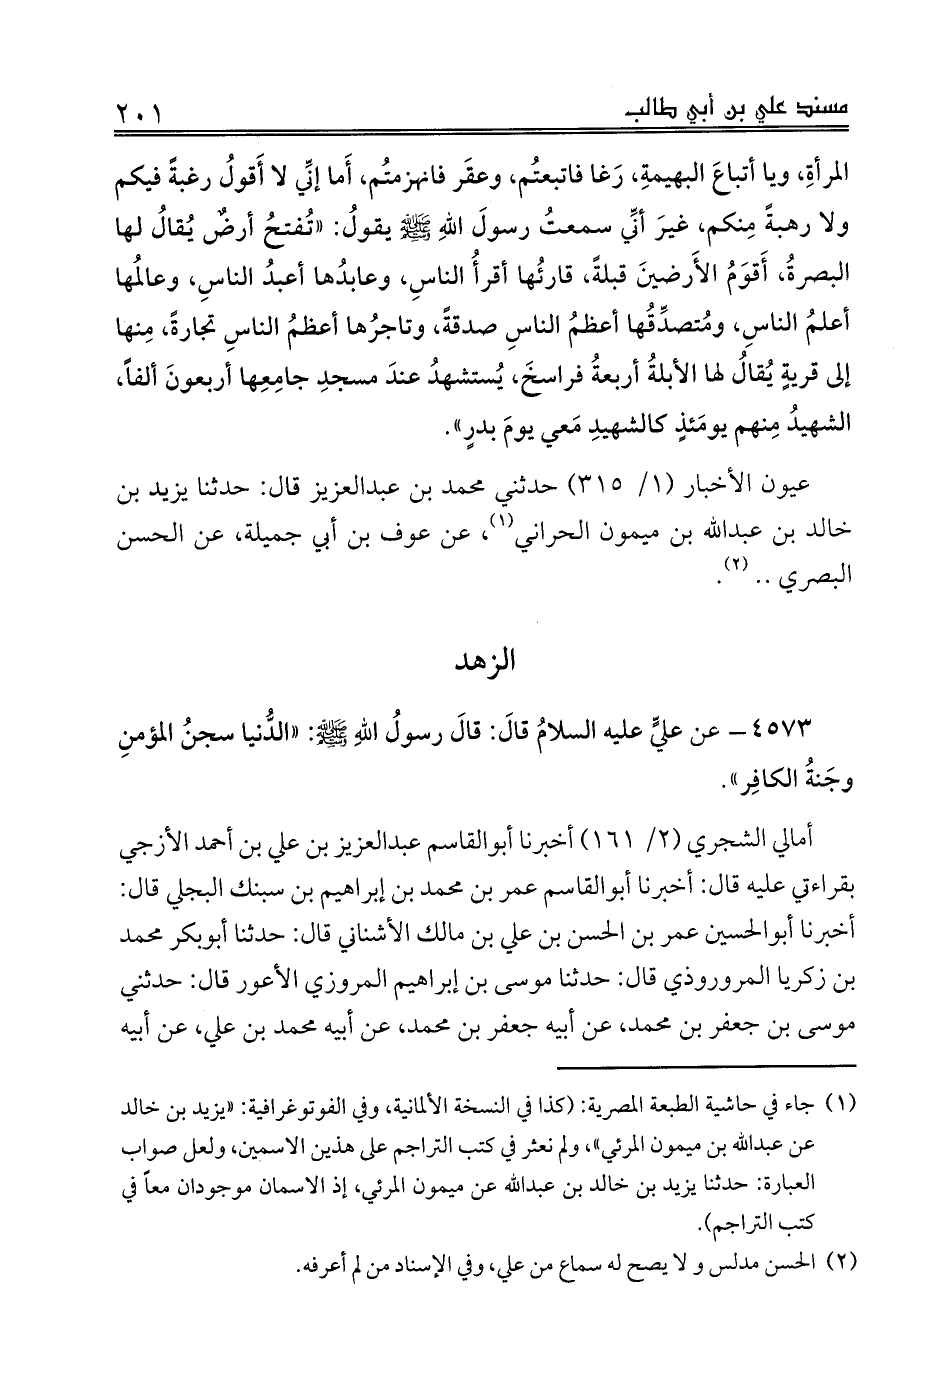 مسند علي بن أبي طالب ٢٠١
المرأةِ، ويا أتباعَ البهيمةِ، رَغا فاتبعتُم، وعقَر فانهزمتُم، أَما إنِّي لا أَقولُ رغبةً فيكم
ولا رهبةً مِنكم، غيرَ أنِّي سمعتُ رسولَ اللهِ ﷺ يقولُ: «تُفتحُ أرضٌ يُقالُ لها
البصرةُ، أَقوَمُ الأَرضينَ قبلةً، قارئُها أقرأُ الناسِ، وعابدُها أعبدُ الناسِ، وعالمُها
أعلمُ الناسِ، ومُتصدِّقُها أعظمُ الناسِ صدقةً، وتاجرُها أعظمُ الناسِ تجارةً، مِنها
إلى قريةٍ يُقالُ لها الأبلةُ أربعةُ فراسخَ، يُستشهدُ عندَ مسجدِ جامعِها أربعونَ ألفاً،
الشهيدُ مِنهم يومَئذٍ كالشهيدِ مَعي يومَ بدرٍ».
عيون الأخبار (١/ ٣١٥) حدثني محمد بن عبدالعزيز قال: حدثنا يزيد بن
خالد بن عبدالله بن ميمون الحراني(١)، عن عوف بن أبي جميلة، عن الحسن
البصري .. (٢).
الزهد
٤٥٧٣ – عن عليٍّ عليه السلامُ قالَ: قالَ رسولُ اللهِ ﷺ: «الدُّنيا سجنُ المؤمنِ
وجَنةُ الكافِر».
أمالي الشجري (٢/ ١٦١) أخبرنا أبوالقاسم عبدالعزيز بن علي بن أحمد الأزجي
بقراءتي عليه قال: أخبرنا أبوالقاسم عمر بن محمد بن إبراهيم بن سبنك البجلي قال:
أخبرنا أبوالحسين عمر بن الحسن بن علي بن مالك الأشناني قال: حدثنا أبوبكر محمد
بن زكريا المروروذي قال: حدثنا موسى بن إبراهيم المروزي الأعور قال: حدثني
موسى بن جعفر بن محمد، عن أبيه جعفر بن محمد، عن أبيه محمد بن علي، عن أبيه
(١) جاء في حاشية الطبعة المصرية: (كذا في النسخة الألمانية، وفي الفوتوغرافية: «يزيد بن خالد
عن عبدالله بن ميمون المرئي»، ولم نعثر في كتب التراجم على هذين الاسمين، ولعل صواب
العبارة: حدثنا يزيد بن خالد بن عبدالله عن ميمون المرئي، إذ الاسمان موجودان معاً في
كتب التراجم).
(٢) الحسن مدلس و لا يصح له سماع من علي، وفي الإسناد من لم أعرفه.